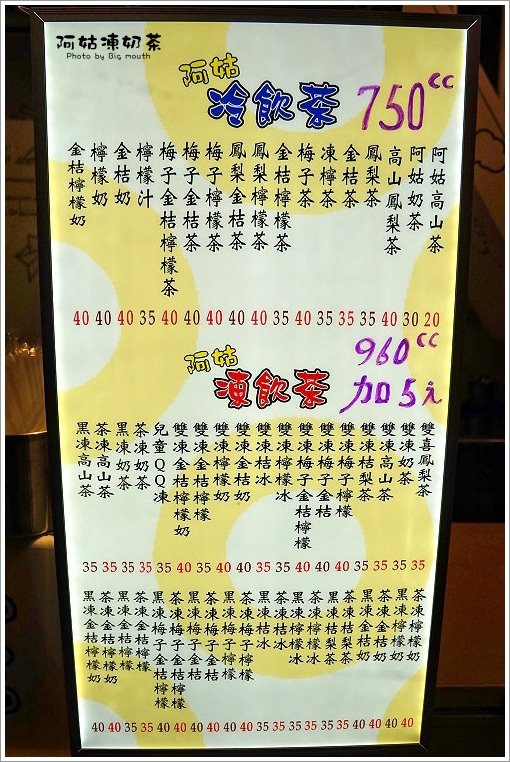 阿姑凍奶茶
Photo by Big mouth
阿姑
冷飲茶 750cc
阿姑高山茶
阿姑奶茶
高山鳳梨茶
鳳梨茶
金桔茶
凍檸茶
梅子茶
金桔檸檬茶
鳳梨檸檬茶
鳳梨金桔茶
梅子檸檬茶
梅子金桔茶
梅子金桔檸檬茶
檸檬汁
金桔奶
檸檬奶
金桔檸檬奶
40 40 40 35 40 40 40 40 40 35 40 35 35 35 40 30 20
阿姑
凍飲茶
960cc
加5元
雙喜鳳梨茶
雙凍奶茶
雙凍高山茶
雙凍桔梨茶
雙凍梅子檸檬
雙凍梅子金桔
雙凍梅子金桔檸檬
雙凍檸檬冰
雙凍桔冰
雙凍金桔奶
雙凍檸檬奶
雙凍金桔檸檬
雙凍金桔檸檬奶
兒童QQ凍
茶凍奶茶
黑凍奶茶
茶凍高山茶
黑凍高山茶
35 35 35 35 35 40 35 40 40 35 35 40 40 40 35 35 35 35
茶凍檸檬奶
黑凍檸檬奶
茶凍金桔奶
黑凍金桔奶
茶凍桔梨茶
黑凍桔梨茶
茶凍檸檬冰
黑凍檸檬冰
茶凍桔冰
黑凍桔冰
茶凍梅子檸檬
黑凍梅子檸檬
茶凍梅子金桔
黑凍梅子金桔
茶凍梅子金桔檸檬
黑凍梅子金桔檸檬
茶凍金桔檸檬
黑凍金桔檸檬
茶凍金桔檸檬奶
黑凍金桔檸檬奶
40 40 35 35 40 40 40 40 40 40 35 35 35 35 35 35 40 40 40 40